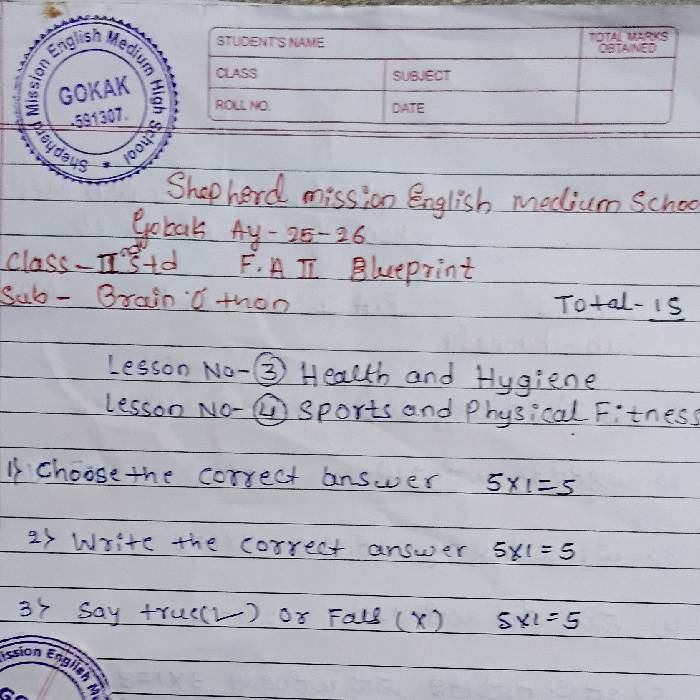 Shepherd Mission English Medium High School
GOKAK
591307.
STUDENT'S NAME
TOTAL MARKS OBTAINED
CLASS
SUBJECT
ROLL NO.
DATE
Shepherd mission English medium Schoo
Gokak Ay-25-26
Class-II std F.A II Blueprint
Sub- Brain O thon
Total-15
Lesson No-③ Health and Hygiene
Lesson No-④ Sports and Physical Fitness
1> Choose the correct answer 5x1=5
2> Write the correct answer 5x1=5
3> Say true(✓) or Fals (x) 5x1=5
ission English M
GO